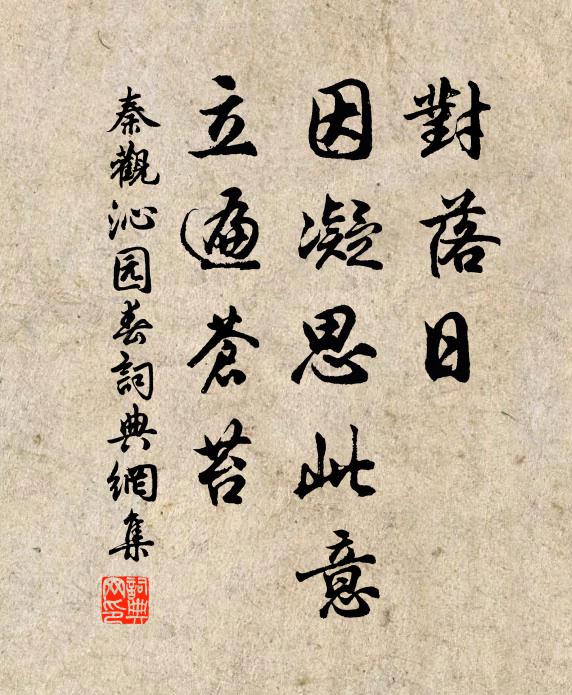 對落日
因凝思此意
立遍蒼苔
秦觀沁园春詞典網集
詞典网印